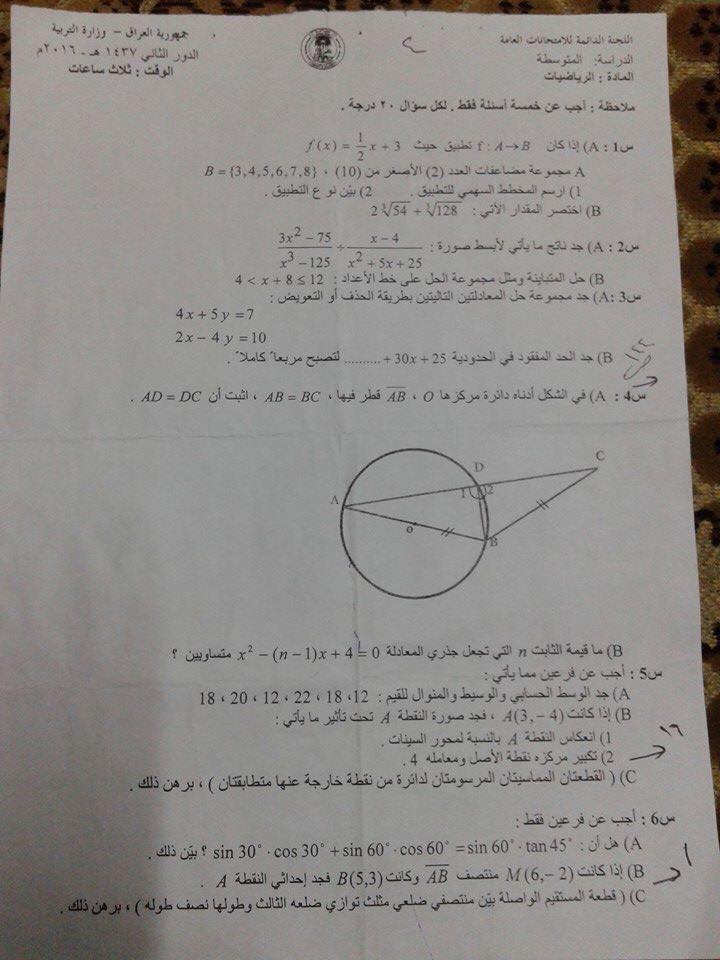 جمهورية العراق - وزارة التربية
الدور الثاني ١٤٣٧ هـ - ٢٠١٦م
الوقت : ثلاث ساعات
اللجنة الدائمة للامتحانات العامة
الدراسة: المتوسطة
المادة : الرياضيات
ملاحظة : أجب عن خمسة أسئلة فقط . لكل سؤال ٢٠ درجة .
س1 : A) إذا كان f : A→B تطبيق حيث f(x) = 1/2 x + 3
A مجموعة مضاعفات العدد (2) الأصغر من (10) ، B = {3,4,5,6,7,8}
1) ارسم المخطط السهمي للتطبيق . 2) بيّن نوع التطبيق .
B) اختصر المقدار الآتي : 2∛54 + ∛128
س2 : A) جد ناتج ما يأتي لأبسط صورة : (3x² − 75)/(x³ − 125) ÷ (x − 4)/(x² + 5x + 25)
B) حل المتباينة ومثل مجموعة الحل على خط الأعداد : 4 < x + 8 ≤ 12
س3 : A) جد مجموعة حل المعادلتين التاليتين بطريقة الحذف أو التعويض :
4x + 5y = 7
2x − 4y = 10
B) جد الحد المفقود في الحدودية .......... + 30x + 25 لتصبح مربعاً كاملاً .
س4 : A) في الشكل أدناه دائرة مركزها O ، AB قطر فيها ، AB = BC ، اثبت أن AD = DC .
C
D
1 2
A
O
B
B) ما قيمة الثابت n التي تجعل جذري المعادلة x² − (n − 1)x + 4 = 0 متساويين ؟
س5 : أجب عن فرعين مما يأتي :
A) جد الوسط الحسابي والوسيط والمنوال للقيم : 12، 18 ، 22 ، 12 ، 20 ، 18
B) إذا كانت A(3, −4) ، فجد صورة النقطة A تحت تأثير ما يأتي :
1) انعكاس النقطة A بالنسبة لمحور السينات .
2) تكبير مركزه نقطة الأصل ومعامله 4 .
١٦
C) ( القطعتان المماسيتان المرسومتان لدائرة من نقطة خارجة عنها متطابقتان ) ، برهن ذلك .
س6 : أجب عن فرعين فقط :
A) هل أن : sin 30° · cos 30° + sin 60° · cos 60° = sin 60° · tan 45° ؟ بيّن ذلك .
B) إذا كانت M(6, −2) منتصف AB وكانت B(5,3) فجد إحداثي النقطة A .
C) ( قطعة المستقيم الواصلة بيّن منتصفي ضلعي مثلث توازي ضلعه الثالث وطولها نصف طوله ) ، برهن ذلك .